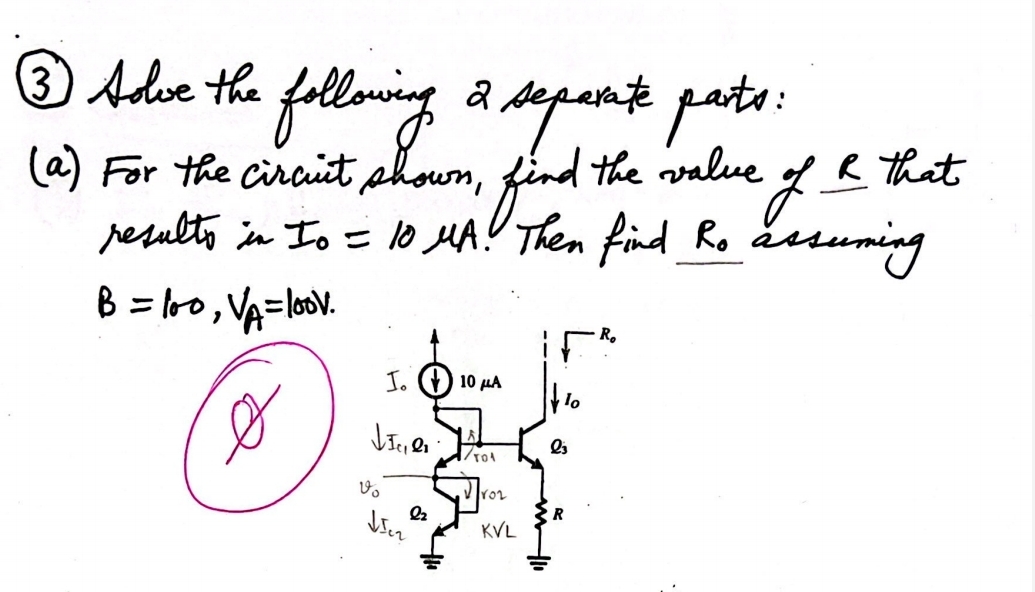 ③ Solve the following 2 separate parts:
(a) For the circuit shown, find the value of R that
results in Io = 10 μA. Then find Ro assuming
B = 100, VA=100V.
Ro
Io 10 μA
IO
IC1 Q1 ro1 Q3
vo
ro2
IC2 Q2 R
KVL